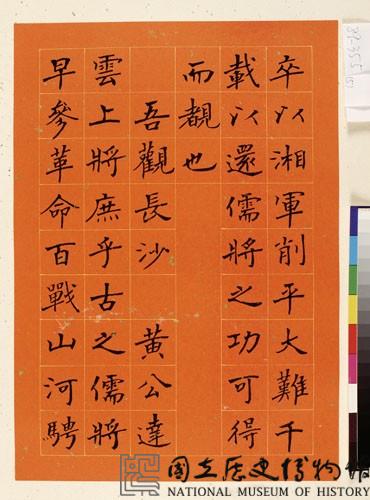 卒以湘軍削平大難千
載以還儒將之功可得
而覩也
吾觀長沙 黃公達
雲上將庶乎古之儒將
早參革命百戰山河騁
國立歷史博物館
NATIONAL MUSEUM OF HISTORY